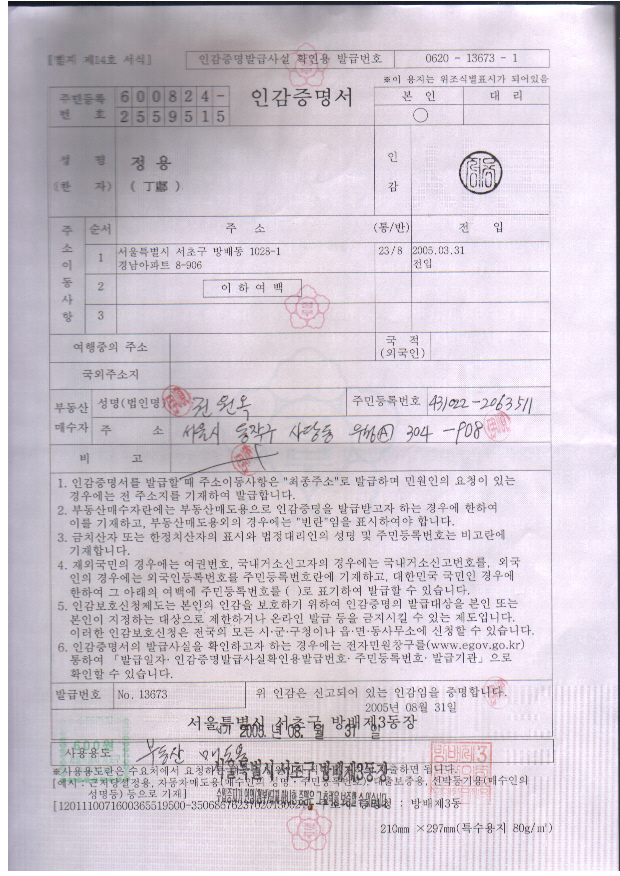 [별지 제14호 서식] 인감증명발급사실 확인용 발급번호 0620 - 13673 - 1
※이 용지는 위조식별표시가 되어있음
주민등록 번호 600824-2559515
인감증명서
본인 대리
○
성명 (한자) 정용 (丁鄘)
인감
주소이동사항 순서 주소 (통/반) 전입
1 서울특별시 서초구 방배동 1028-1 23/8 2005.03.31
경남아파트 8-906 전입
2 이하여백
3
여행중의 주소 국적 (외국인)
국외주소지
부동산 매수자 성명(법인명) 권원옥 주민등록번호 431022-2063511
주소 서울시 동작구 사당동 우성 304-908
비고
1. 인감증명서를 발급할 때 주소이동사항은 "최종주소"로 발급하며 민원인의 요청이 있는
경우에는 전 주소지를 기재하여 발급합니다.
2. 부동산매수자란에는 부동산매도용으로 인감증명을 발급받고자 하는 경우에 한하여
이를 기재하고, 부동산매도용외의 경우에는 "빈란"임을 표시하여야 합니다.
3. 금치산자 또는 한정치산자의 표시와 법정대리인의 성명 및 주민등록번호는 비고란에
기재합니다.
4. 재외국민의 경우에는 여권번호, 국내거소신고자의 경우에는 국내거소신고번호를, 외국
인의 경우에는 외국인등록번호를 주민등록번호란에 기재하고, 대한민국 국민인 경우에
한하여 그 아래의 여백에 주민등록번호를 ( )로 표기하여 발급할 수 있습니다.
5. 인감보호신청제도는 본인의 인감을 보호하기 위하여 인감증명의 발급대상을 본인 또는
본인이 지정하는 대상으로 제한하거나 온라인 발급 등을 금지시킬 수 있는 제도입니다.
이러한 인감보호신청은 전국의 모든 시·군·구청이나 읍·면·동사무소에 신청할 수 있습니다.
6. 인감증명서의 발급사실을 확인하고자 하는 경우에는 전자민원창구를(www.egov.go.kr)
통하여 「발급일자·인감증명발급사실확인용발급번호·주민등록번호·발급기관」으로
확인할 수 있습니다.
발급번호 No. 13673 위 인감은 신고되어 있는 인감임을 증명합니다.
2005년 08월 31일
서울특별시 서초구 방배제3동장
2005년 08월 31일
사용용도 부동산 매도용
서울특별시 서초구 방배제3동장
방배제3
※사용용도란은 수요처에서 요청하는
성명등) 등으로 기재]
: 방배제3동
210mm ×297mm(특수용지 80g/㎡)